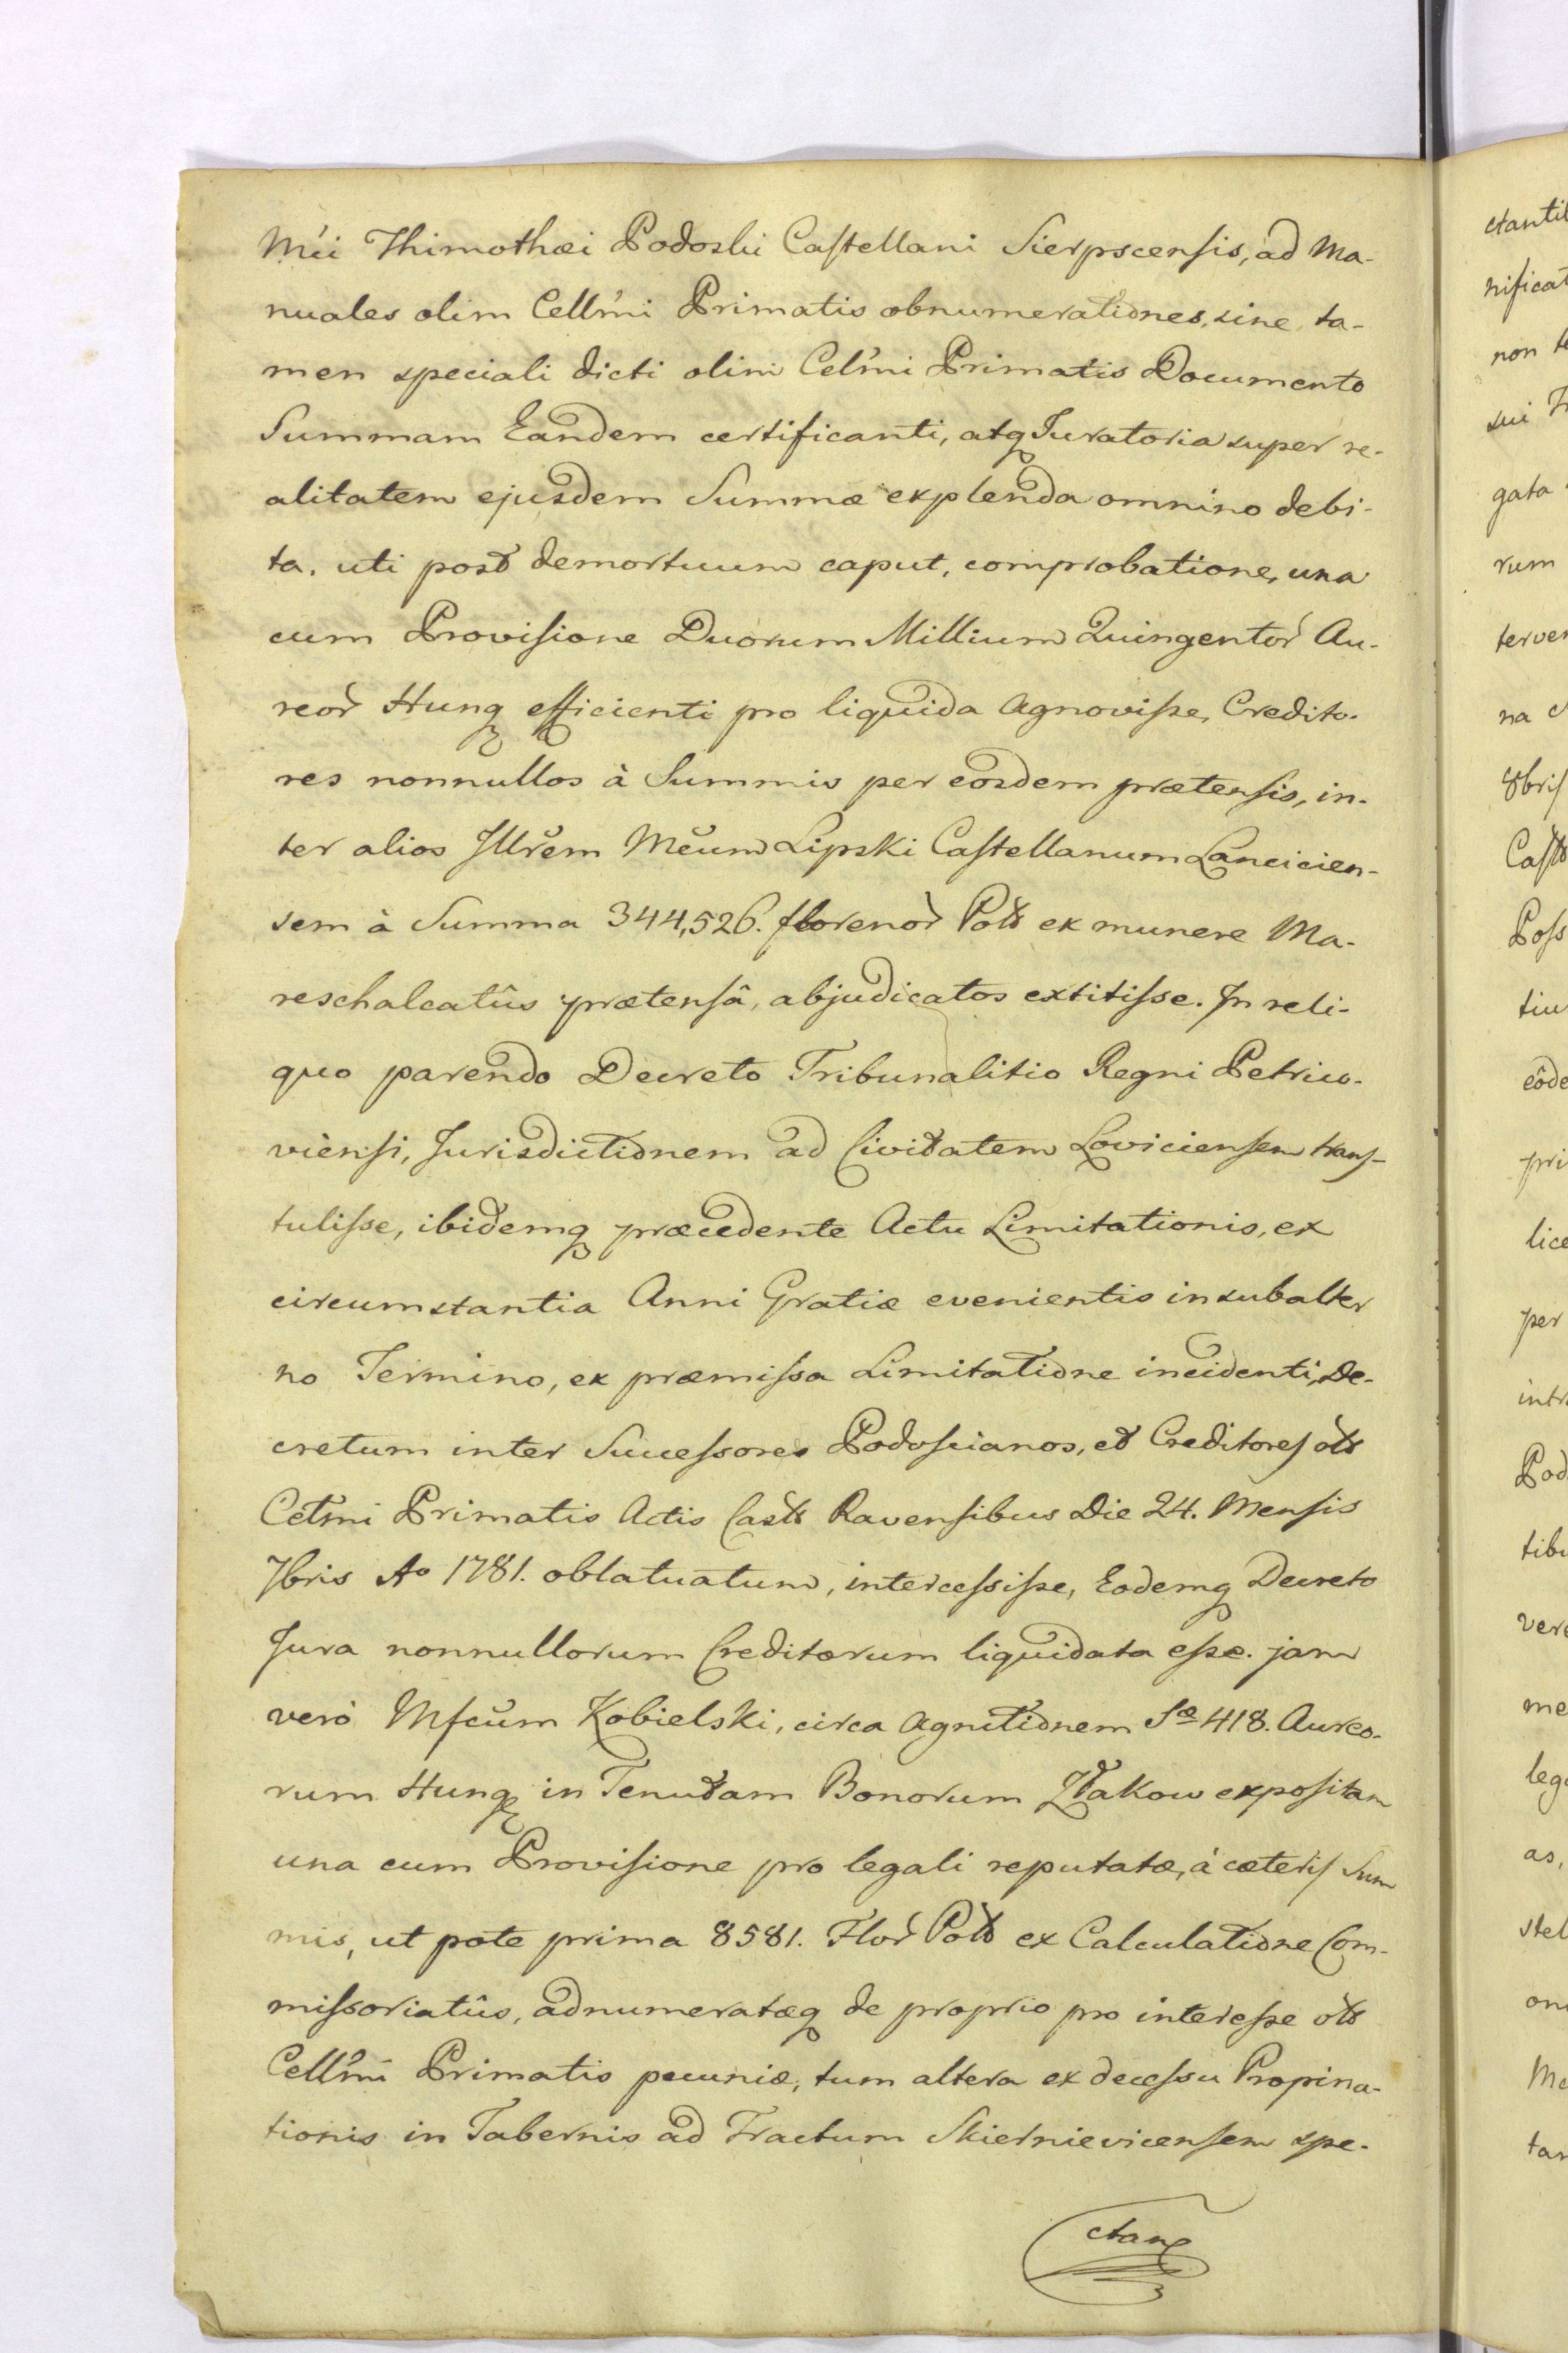 Mci Thimothæi Podoski Castellani Sierpscensis, ad Ma-
nuales olim Cellmi Primatis obnumerationes, sine ta-
men speciali dicti olim Celmi Primatis Documento
Summam Eandem certificanti, atq Juratoria super re-
alitatem ejusdem Summæ explenda omnino debi-
ta, uti post demortuum caput, comprobatione, una
cum Provisione Duorum Millium Quingentor Au-
reor Hung efficienti pro liquida agnovisse, Credito-
res nonnullos à Summis per eosdem prætensis, in-
ter alios Jllrem Mcum Lipski Castellanum Lancicien-
sem à Summa 344,526. florenor Pol ex munere Ma-
reschalcatûs prætensâ, abjudicatos extitisse. Jn reli-
quo parendo Decreto Tribunalitio Regni Petrico-
viensi, Jurisdictionem ad Civitatem Loviciensem trans-
tulisse, ibidemq præcedente Actu Limitationis, ex
circumstantia Anni Gratiæ evenientis in subalter
no Termino, ex præmissa Limitatione incidenti, De-
cretum inter Successores Podoscianos, et Creditores ol
Celmi Primatis Actis Cast Ravensibus Die 24. Mensis
7bris Ao 1781. oblatuatum, intercessisse, Eodemq Decreto
Jura nonnullorum Creditorum liquidata esse. jam
verò Mfcum Kobielski, circa agnitionem Sæ 418. Aureo-
rum Hung in Tenutam Bonorum Złakow expositam
una cum Provisione pro legali reputatæ, à cæteris Sum
mis, ut pote prima 8581. Flor Pol ex Calculatione Com-
missoriatûs, adnumeratæq de proprio pro interesse ol
Cellmi Primatis pecuniæ, tum altera ex decessu Propina-
tionis in Tabernis ad Tractum Skiernievicensem spe-
ctan
ctanti
nificat
non
sui
gata
rum
terven
na
8bris
Cast
Poss
tiu
eôde
pri
lice
per
intr
Pod
tibu
vere
me
leg
as,
stel
on
Ma
tan